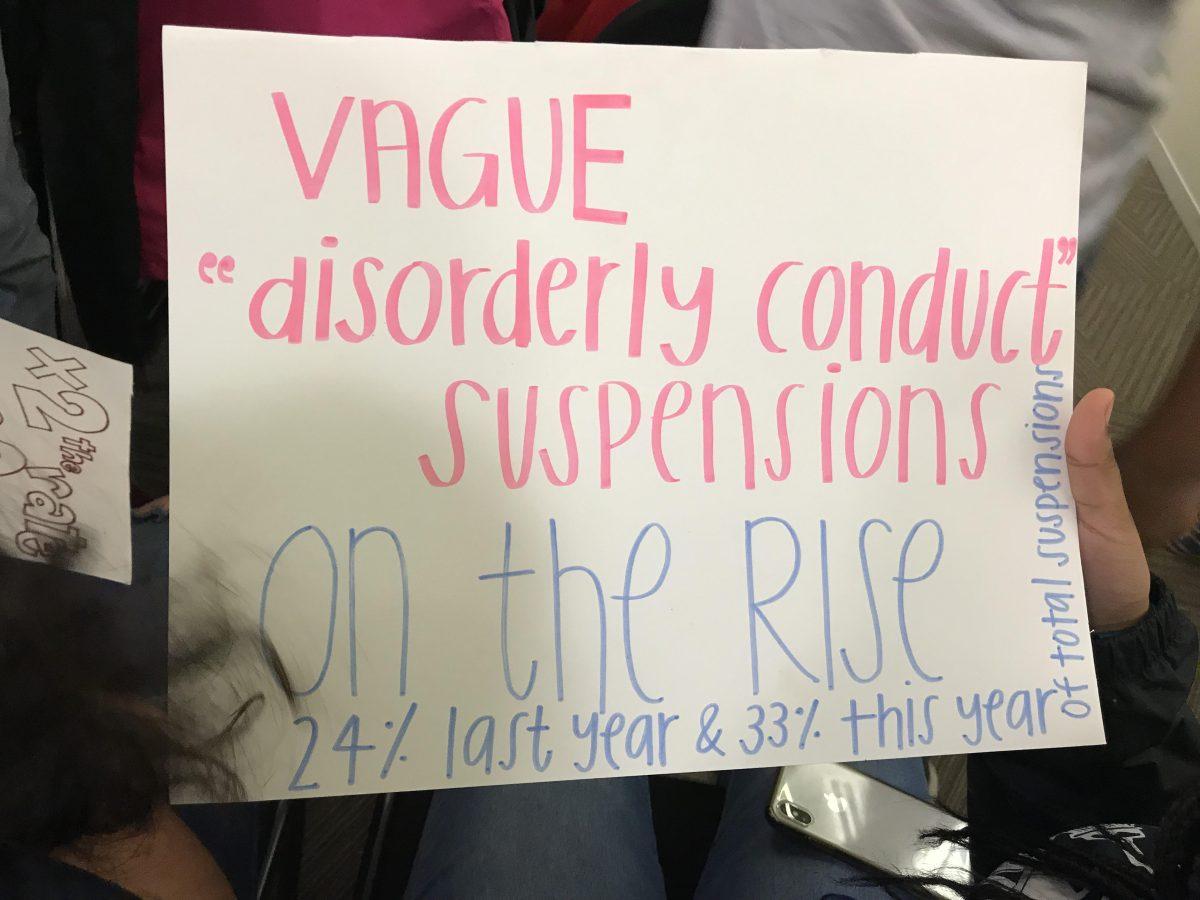 VAGUE
"disorderly conduct"
suspensions
on the RISe
24% last year & 33% this year
of total suspensions
x2
the rate